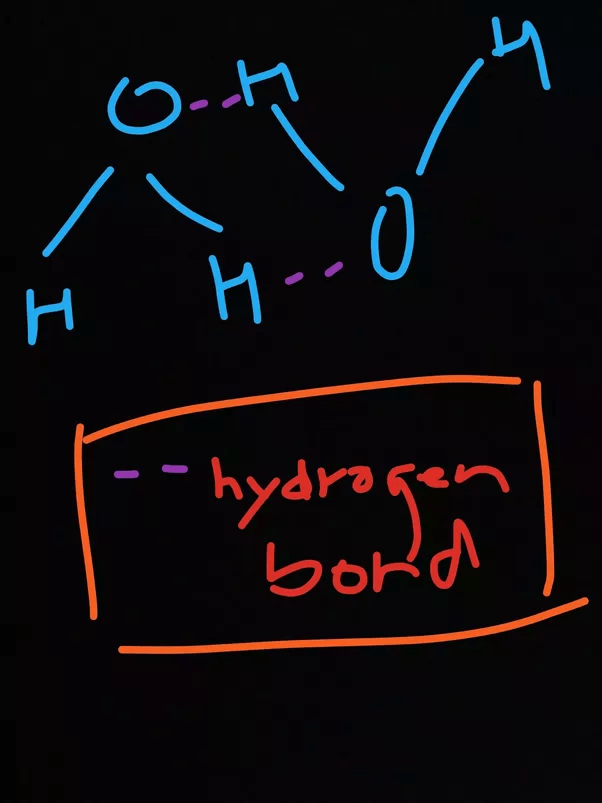 O -- H H
H H -- O
-- hydrogen
bond